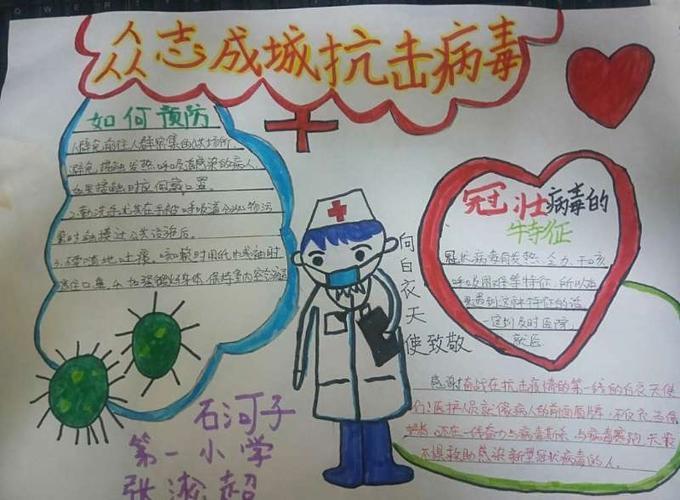 众志成城抗击病毒
如何预防
1.避免前往人群密集的公共场所
避免接触发热呼吸道感染的病人
如果接触时应佩戴口罩。
2.勤洗手尤其在手被呼吸道分泌物污
染时 触摸过公共设施后。
3.不要随地吐痰,咳嗽时用纸巾或袖口
遮住口鼻。4.加强锻炼身体,保持室内空气流通
冠壮病毒的
特征
冠状病毒有发热、乏力、干咳
呼吸困难等特征,所以如
果遇到这种特征的话
一定到及时医院
就医
向白衣天使致敬
感谢奋战在抗击疫情的第一线的白衣天使
们!医护人员就像病人的前面盾牌,不仅不丢盔
还在一件奋力与病毒厮杀、与病毒赛跑,夭
不惧救助感染新型冠状病毒的人。
石河子
第一小学
张淞超